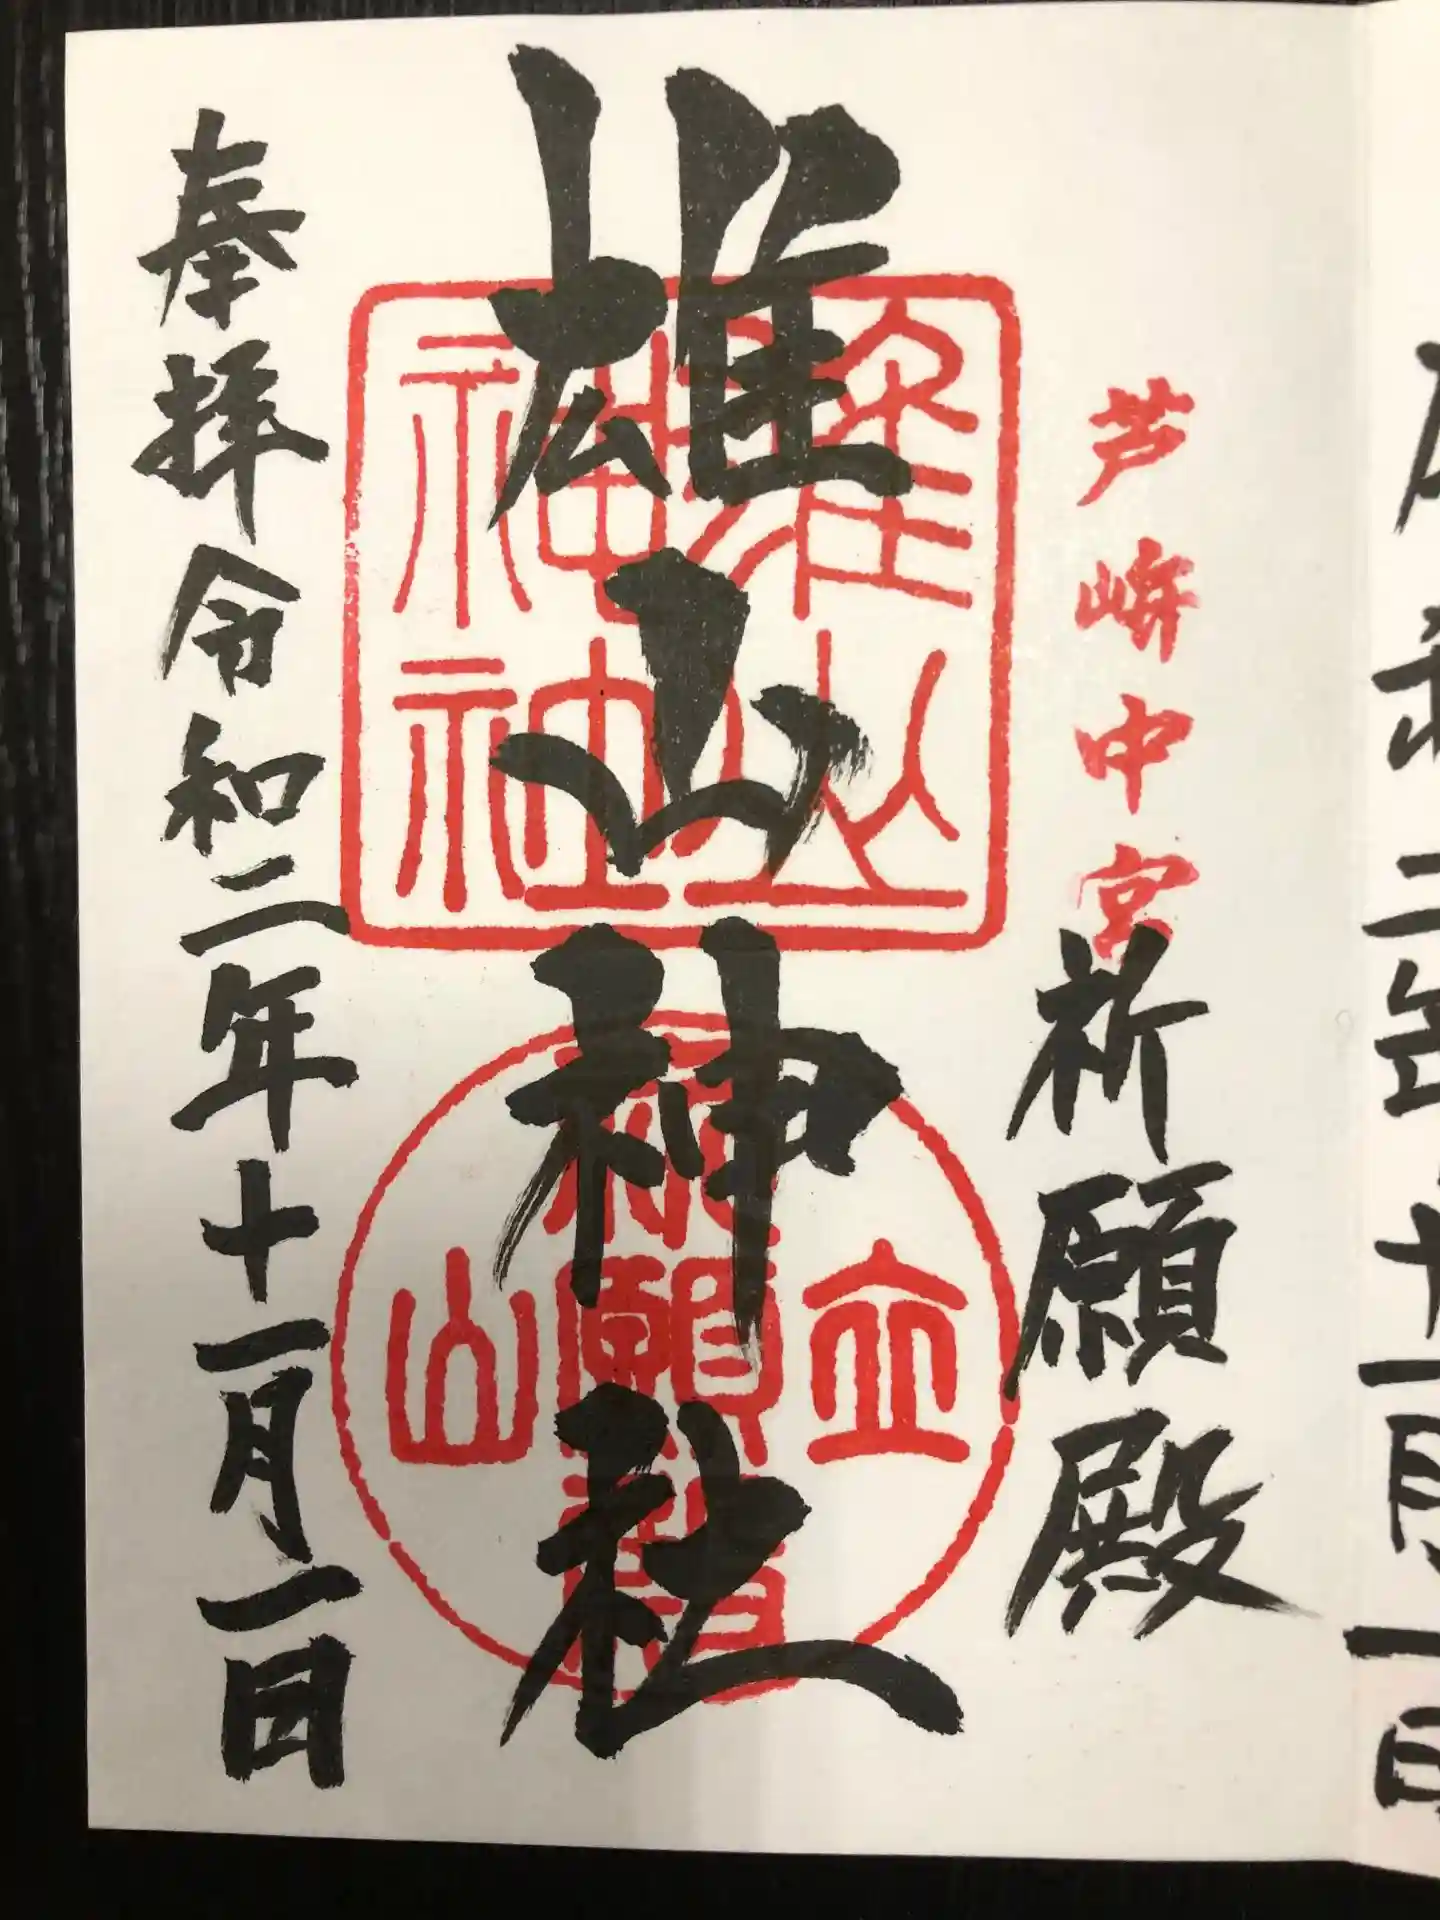 芦峅中宮
祈願殿
雄山神社
奉拝令和二年十一月一日
雄山
神神
立
祈願
山
二年十一月一日